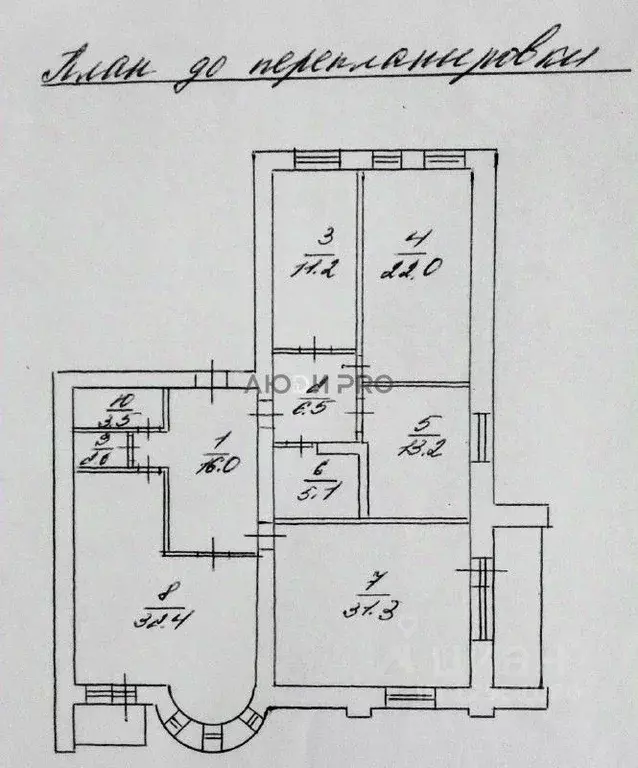 План до перепланировки
3
11.2
4
22.0
АЮФИ PRO
2
6.5
10
3.5
9
1
16.0
5
13.2
6
5.1
7
31.3
8
32.4
циан